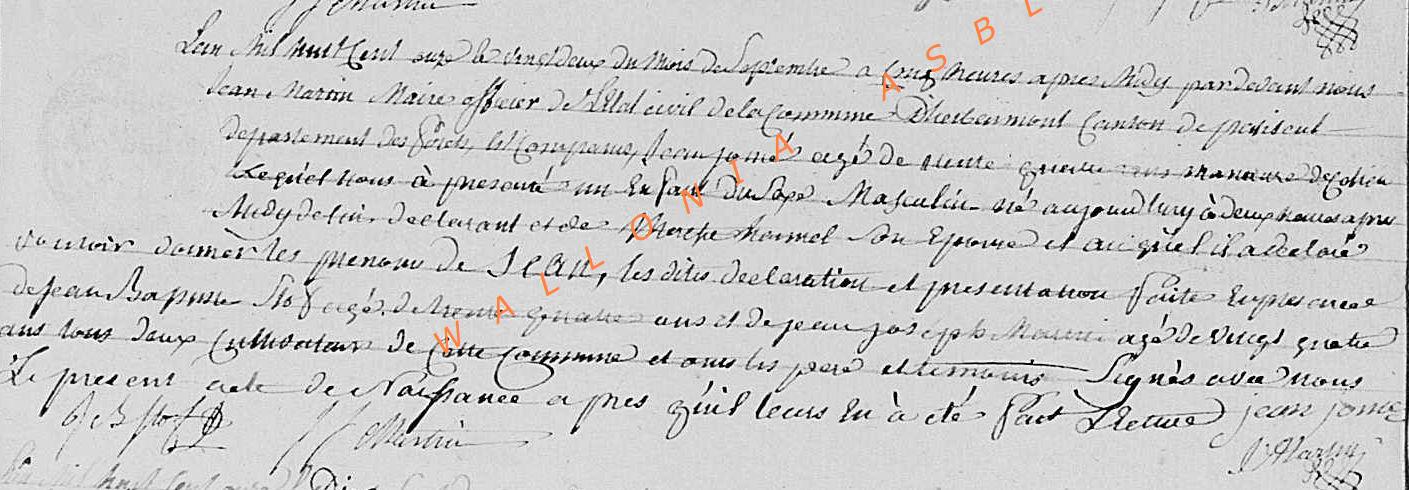 Lan Mil huit Cent onze le vingt deux du Mois de Septembre a Cinq heures apres Midy par devant nous
Jean Martin Maire officier de L'Etat civil de la Commune D'herbeumont Canton de paliseul
departement des forets, est Comparu, Jean jomé agé de trente quatre ans manœuvre
Lequel nous à presenté un Enfant du Sexe Masculin né aujourdhuy à deux heures apres
Midy de lui declarant et de son Epouse et auquel il a declaré
vouloir donner les prenoms de JEAN, les dites declaration et presentation faite En presence
de Jean Baptiste Stof agé de trente quatre ans et de jean joseph Martin agé de vingt quatre
ans tous deux Cultivateurs de Cette Commune et ont les pere et temoins Signés avec nous
Le present acte de Naissance apres qu'il leurs En à été fait Lecture jean jome
J B Stof J J Martin J Martin
WALLONIA ASBL